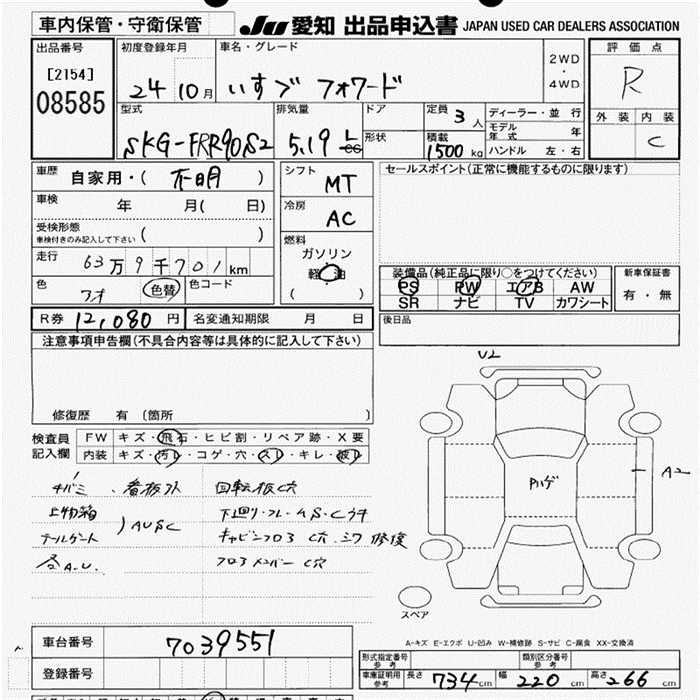 車内保管・守衛保管 JU 愛知 出品申込書 JAPAN USED CAR DEALERS ASSOCIATION
出品番号 初度登録年月 車名・グレード 評価点
[2154] 2WD
・
08585 24 10月 いすゞ フォワード 4WD R
型式 排気量 ドア 定員 3人 ディーラー・並行 外装 内装
モデル年式 年
SKG-FRR90S2 5.19 L cc 形状 積載 1500kg ハンドル 左・右 C
車歴 自家用・( 不明 ) シフト MT セールスポイント(正常に機能するものに限ります)
車検 年 月( 日) 冷房 AC
受検形態
車検付きのみ記入して下さい ( )
燃料
ガソリン
走行 63万9千701km 軽・油 装備品(純正品に限り○をつけてください) 新車保証書
( ) PS PW エアB AW 有・無
色 色替 色コード SR ナビ TV カワシート
R券 12,080円 名変通知期限 月 日 後日品
注意事項申告欄(不具合内容等は具体的に記入して下さい)
U2
修復歴 有 (箇所 )
検査員 FW キズ・飛石・ヒビ割・リペア跡・X要
記入欄 内装 キズ・汚レ・コゲ・穴・スレ・キレ・破レ
A2
Pハゲ
看板外 回転板C穴
上物箱 下回り・フレームS・Cウキ
テールゲート )AUSC キャビンフロア C穴・シワ 修復
各A.U. フロアメンバーC穴
スペア
A-キズ E-エクボ U-凹み W-補修跡 S-サビ C-腐食 XX-交換済
車台番号 7039551
型式指定番号 参考 類別区分番号 参考
登録番号 車庫証明用 参考 長さ 734cm 幅 220cm 高さ 266cm